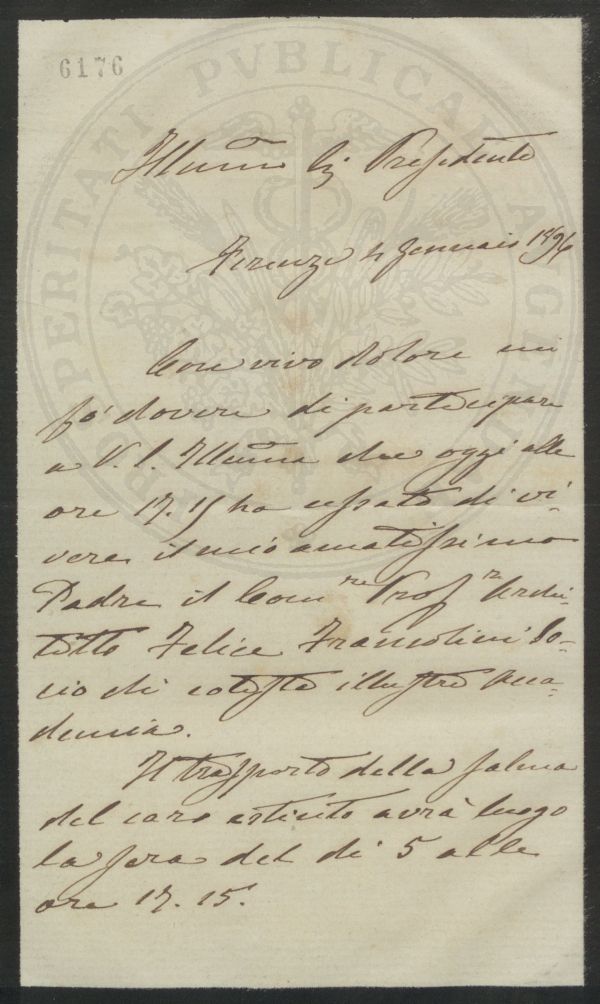 6176
PROSPERITATI PVBLICAE AVGENDAE
Illmo Sig Presidente
Firenze 4 Gennaio 1896
Con vivo dolore mi
fo' dovere di partecipare
a V. S. Illma che oggi alle
ore 17.15 ha cessato di vi-
vere il mio amatissimo
Padre il Comre Profre Archi-
tetto Felice Francolini So-
cio di cotesta illustre Acca-
demia.
Il trasporto della salma
del caro estinto avrà luogo
la sera del di 5 alle
ore 17.15.